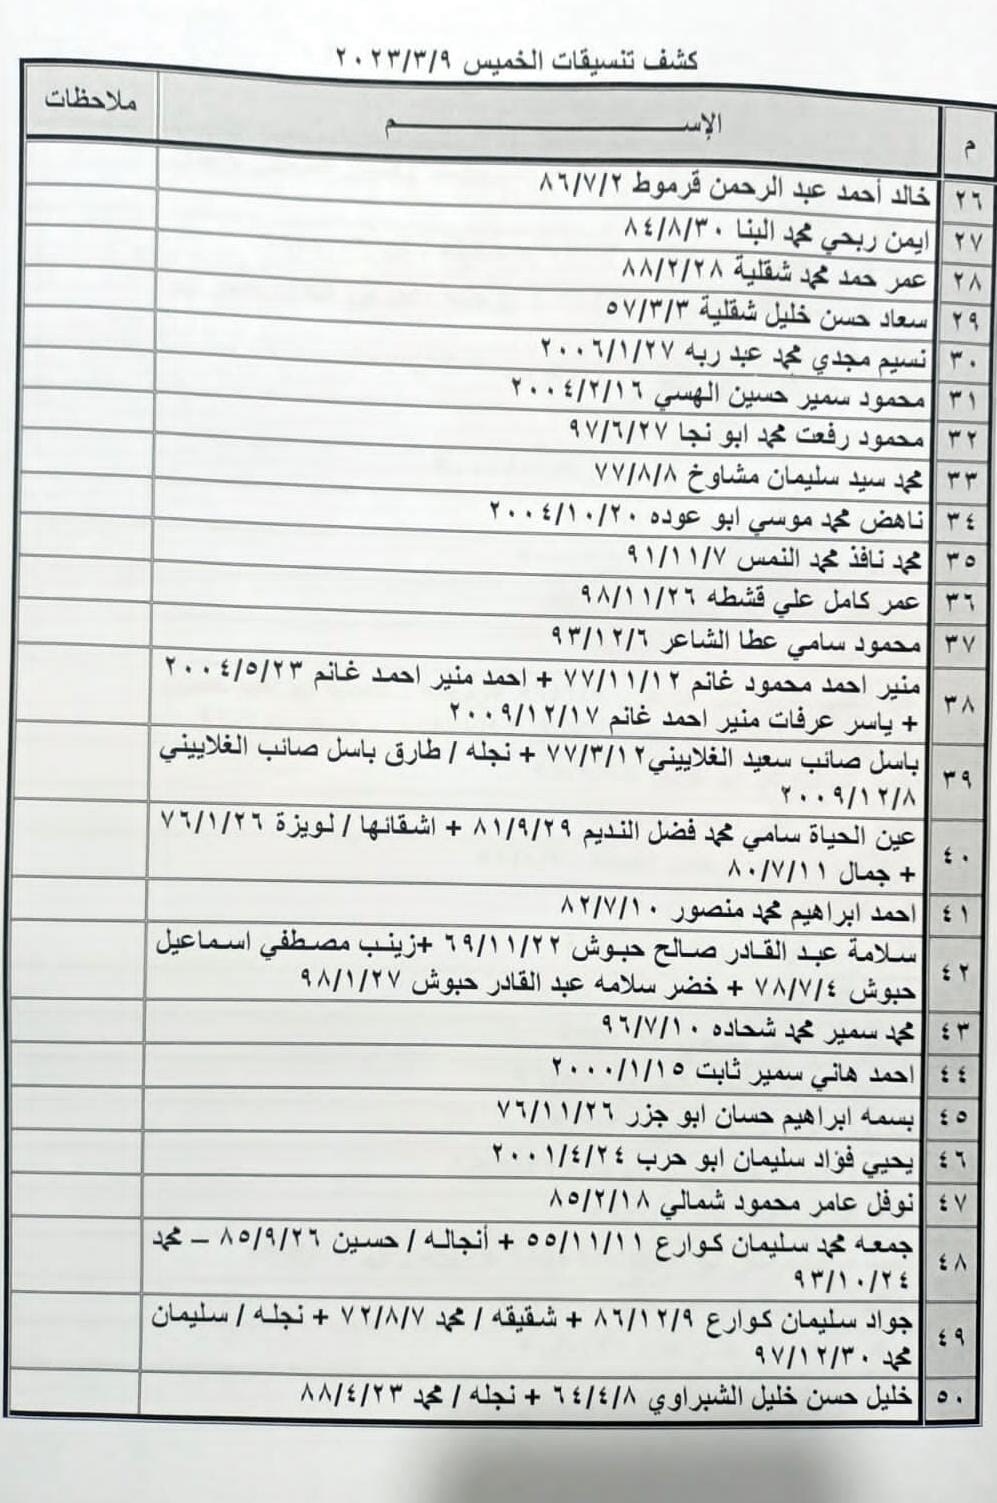 كشف تنسيقات الخميس ٢٠٢٣/٣/٩
م الإســـــــــم ملاحظات
٢٦ خالد أحمد عبد الرحمن قرموط ٨٦/٧/٢
٢٧ ايمن ربحي محمد البنا ٨٤/٨/٣٠
٢٨ عمر حمد محمد شقلية ٨٨/٢/٢٨
٢٩ سعاد حسن خليل شقلية ٥٧/٣/٣
٣٠ نسيم مجدي محمد عبد ربه ٢٠٠٦/١/٢٧
٣١ محمود سمير حسين الهسي ٢٠٠٤/٢/١٦
٣٢ محمود رفعت محمد ابو نجا ٩٧/٦/٢٧
٣٣ محمد سيد سليمان مشاوخ ٧٧/٨/٨
٣٤ ناهض محمد موسي ابو عوده ٢٠٠٤/١٠/٢٠
٣٥ محمد نافذ محمد النمس ٩١/١١/٧
٣٦ عمر كامل علي قشطه ٩٨/١١/٢٦
٣٧ محمود سامي عطا الشاعر ٩٣/١٢/٦
٣٨ منير احمد محمود غانم ٧٧/١١/١٢ + احمد منير احمد غانم ٢٠٠٤/٥/٢٣
+ ياسر عرفات منير احمد غانم ٢٠٠٩/١٢/١٧
٣٩ باسل صائب سعيد الغلاييني٧٧/٣/١٢ + نجله / طارق باسل صائب الغلاييني
٢٠٠٩/١٢/٨
٤٠ عين الحياة سامي محمد فضل النديم ٨١/٩/٢٩ + اشقائها / لويزة ٧٦/١/٢٦
+ جمال ٨٠/٧/١١
٤١ احمد ابراهيم محمد منصور ٨٢/٧/١٠
٤٢ سلامة عبد القادر صالح حبوش ٦٩/١١/٢٢ +زينب مصطفي اسماعيل
حبوش ٧٨/٧/٤ + خضر سلامه عبد القادر حبوش ٩٨/١/٢٧
٤٣ محمد سمير محمد شحاده ٩٦/٧/١٠
٤٤ احمد هاني سمير ثابت ٢٠٠٠/١/١٥
٤٥ بسمه ابراهيم حسان ابو جزر ٧٦/١١/٢٦
٤٦ يحيي فؤاد سليمان ابو حرب ٢٠٠١/٤/٢٤
٤٧ نوفل عامر محمود شمالي ٨٥/٢/١٨
٤٨ جمعه محمد سليمان كوارع ٥٥/١١/١١ + أنجاله / حسين ٨٥/٩/٢٦ – محمد
٩٣/١٠/٢٤
٤٩ جواد سليمان كوارع ٨٦/١٢/٩ + شقيقه / محمد ٧٢/٨/٧ + نجله / سليمان
محمد ٩٧/١٢/٣٠
٥٠ خليل حسن خليل الشبراوي ٦٤/٤/٨ + نجله / محمد ٨٨/٤/٢٣